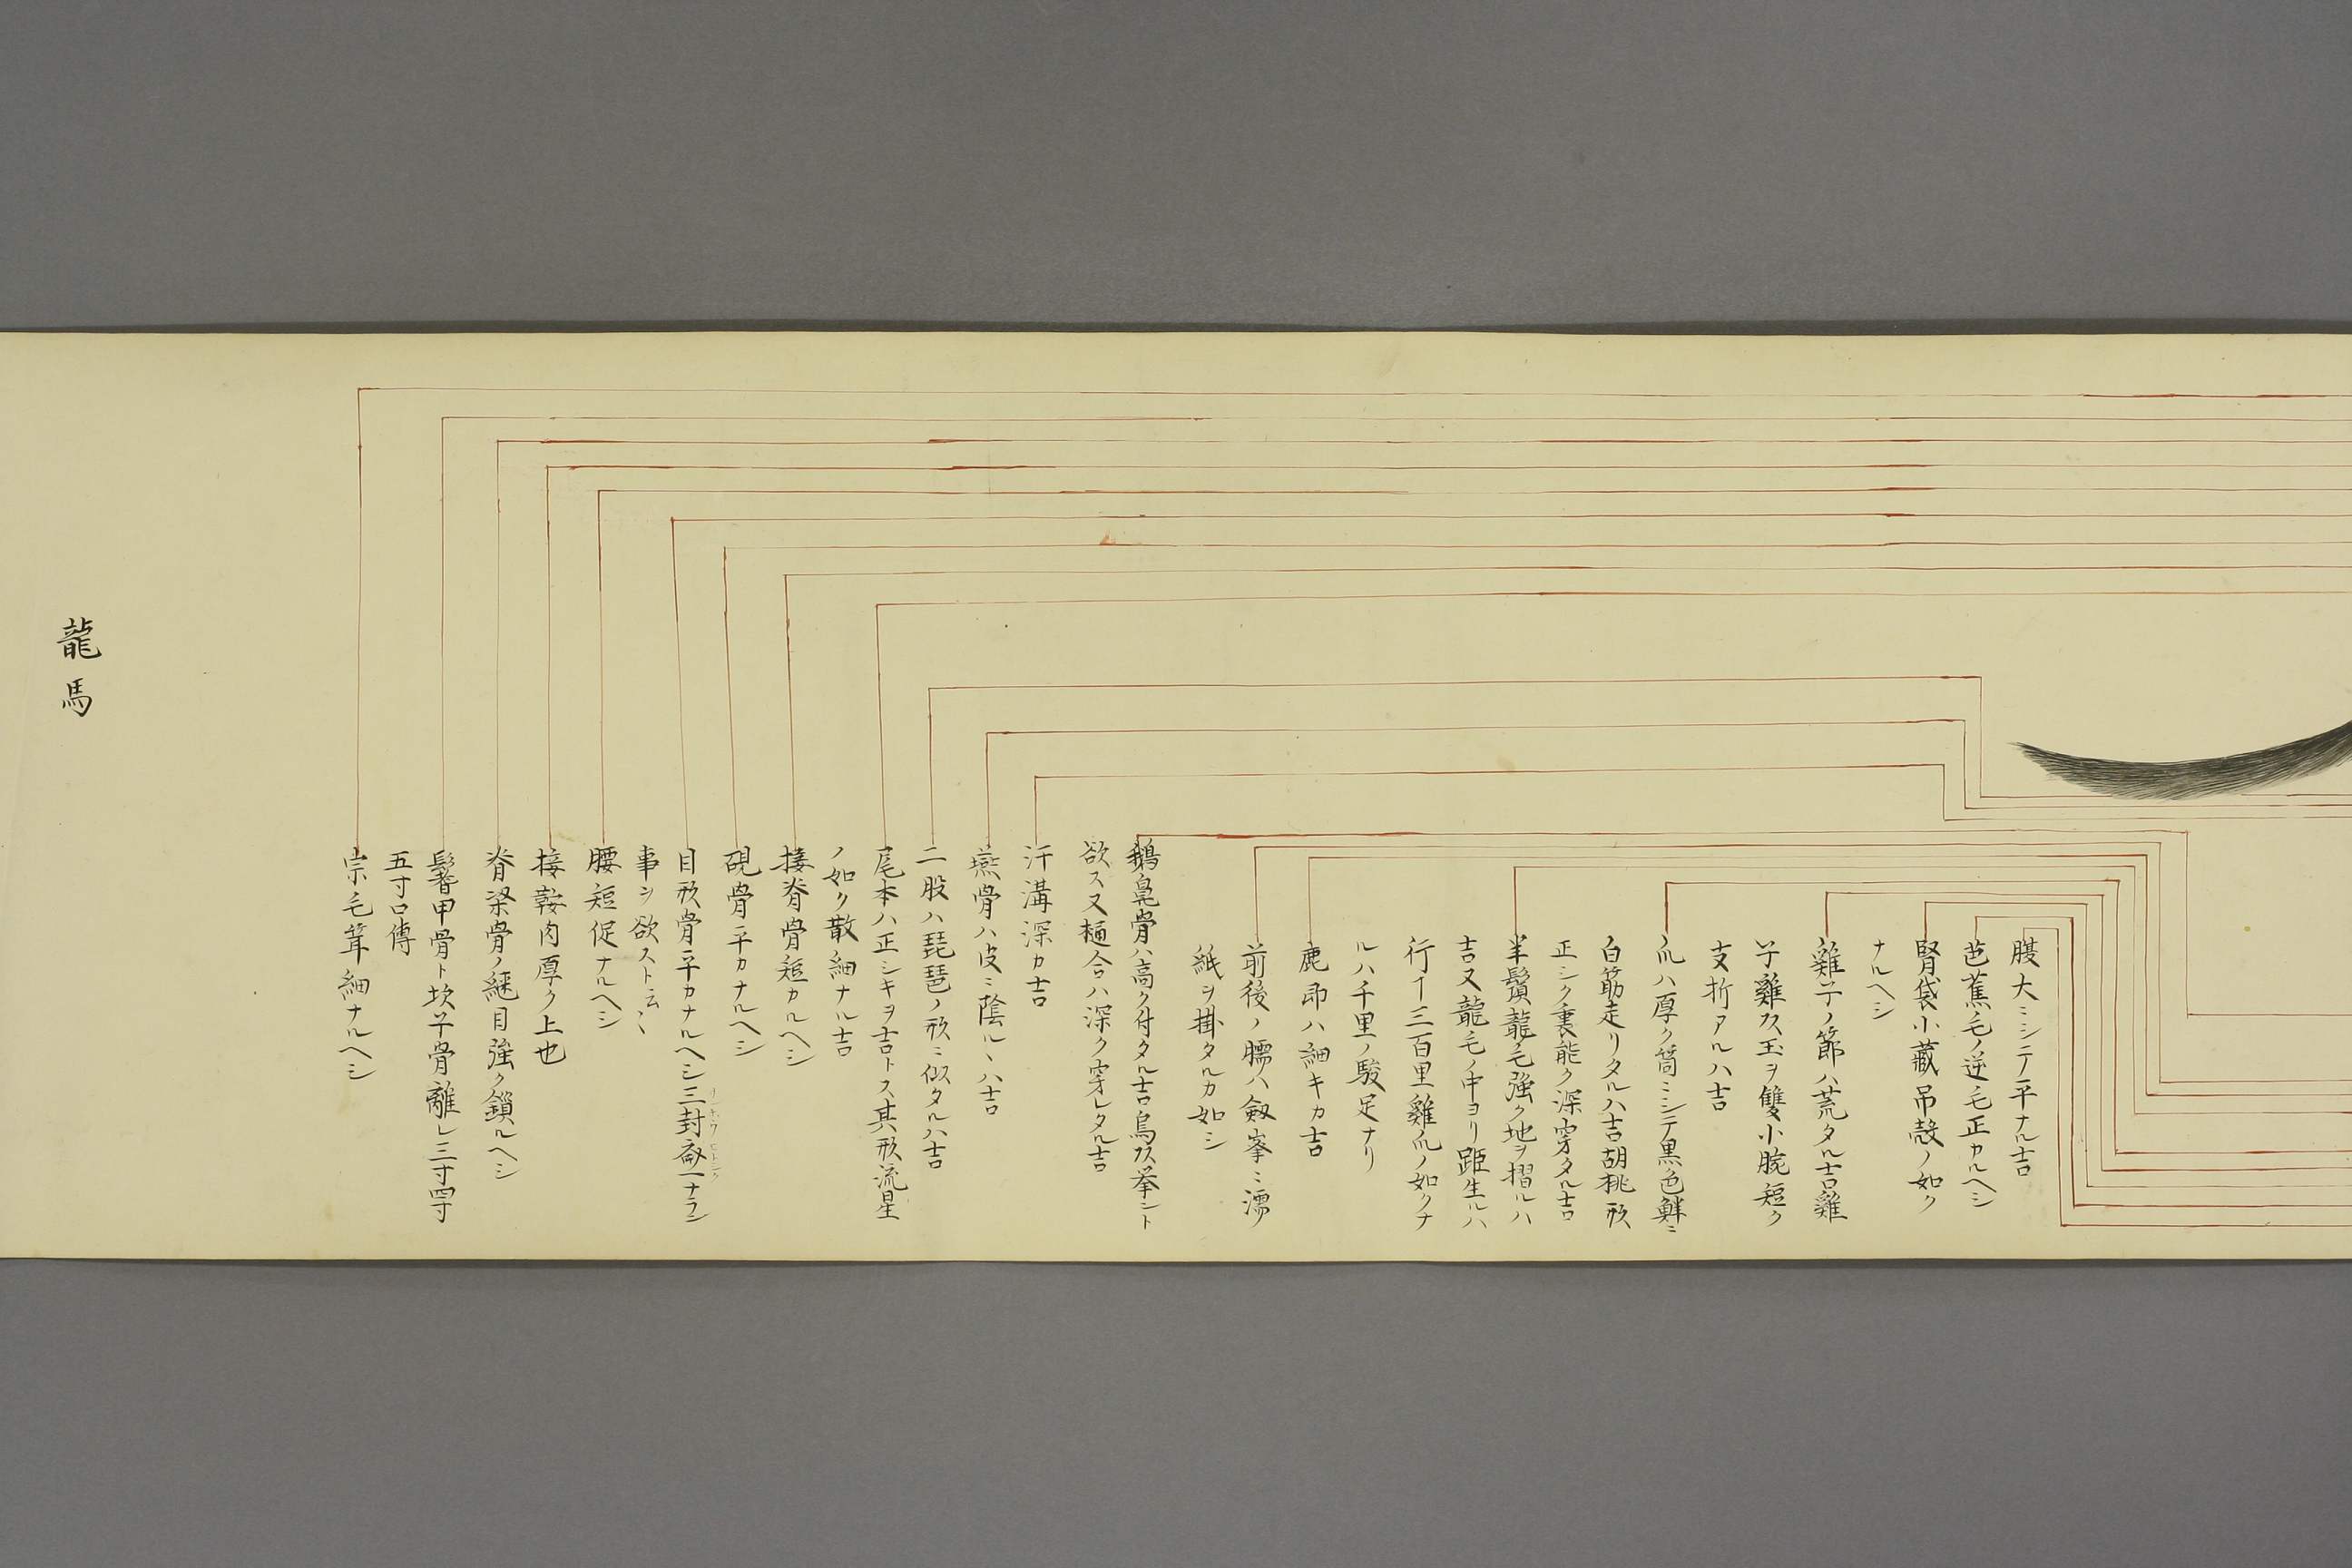 腹大ニシテ平ナル吉
芭蕉毛ノ逆毛正カルヘシ
腎袋小蔵吊殻ノ如ク
ナルヘシ
雞子ノ節ハ荒タル吉雞
子雞又玉ヲ雙小腕短ク
支折アルハ吉
爪ハ厚ク筒ニシテ黒色鮮ニ
白筋走リタルハ吉胡桃形
正シク裏能ク深穿タル吉
羊鬚龍ノ毛強ク地ヲ摺ルハ
吉又龍毛ノ中ヨリ距生ルハ
行丁三百里雞爪ノ如クナ
ルハ千里ノ駿足ナリ
鹿節ハ細キカ吉
前後ノ臑ハ劔峯ニ濡
紙ヲ掛タルカ如シ
鵝鼻骨ハ高ク付タル吉烏又挙ント
欲ス又樋合ハ深ク穿レタル吉
汗溝深カ吉
燕骨ハ皮ニ陰ルヽハ吉
二股ハ琵琶ノ形ニ似タルハ吉
尾本ハ正シキヲ吉トス其形流星
ノ如ク散細ナル吉
接脊骨短カルヘシ
硯骨平カナルヘシ
目形骨平カナルヘシ三封
事ヲ欲スト云々
腰短促ナルヘシ
接鞍肉厚ク上也
脊梁骨ノ継目強ク鎖ルヘシ
鬐甲骨ト坎子骨離レ三寸四寸
五寸口傳
宗毛茸細ナルヘシ
龍馬